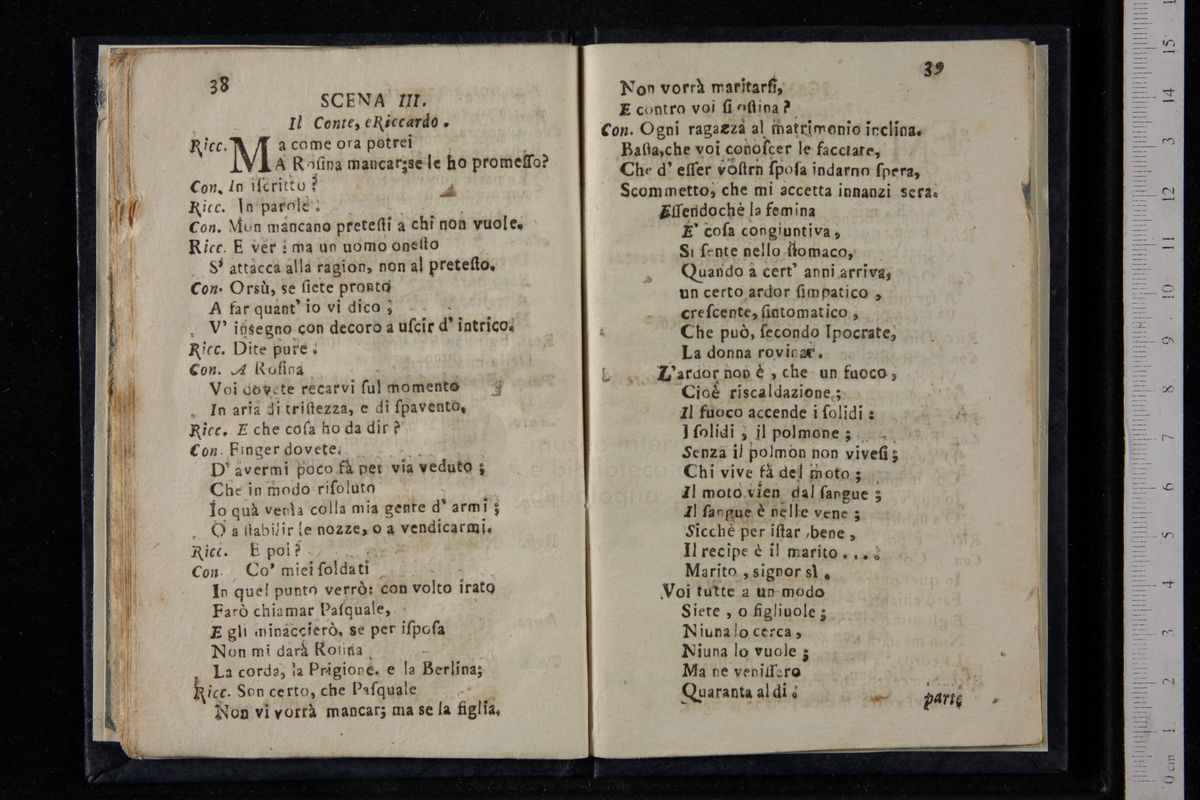 38
SCENA III.
Il Conte, e Riccardo.
Ricc. Ma come ora potrei
A Roſina mancar; se le ho promeſſo?
Con. In iſcritto?
Ricc. In parole:
Con. Mon mancano preteſti a chi non vuole.
Ricc. E ver: ma un uomo oneſto
S' attacca alla ragion, non al preteſto.
Con. Orsù, se ſiete pronto
A far quant' io vi dico;
V' insegno con decoro a uſcir d' intrico.
Ricc. Dite pure:
Con. A Roſina
Voi dovete recarvi ſul momento
In aria di triſtezza, e di ſpavento.
Ricc. E che coſa ho da dir?
Con. Finger dovete.
D' avermi poco fà per via veduto;
Che in modo riſoluto
Io quà verrà colla mia gente d' armi;
O a ſtabilir le nozze, o a vendicarmi.
Ricc. E poi?
Con. Co' miei ſoldati
In quel punto verrò: con volto irato
Farò chiamar Paſquale,
E gli minaccierò, se per iſpoſa
Non mi darà Roſina
La corda, la Prigione. e la Berlina;
Ricc. Son certo, che Paſquale
Non vi vorrà mancar; ma se la figlia.
39
Non vorrà maritarſi,
E contro voi ſi oſtina?
Con. Ogni ragazza al matrimonio inclina.
Baſta, che voi conoſcer le facciate,
Che d' eſſer voſtrn ſpoſa indarno ſpera,
Scommetto, che mi accetta innanzi sera.
Eſſendochè la femina
E' coſa congiuntiva,
Si ſente nello ſtomaco,
Quando a cert' anni arriva,
un certo ardor ſimpatico,
creſcente, ſintomatico,
Che può, ſecondo Ipocrate,
La donna rovinar.
L'ardor non è, che un fuoco,
Cioè riscaldazione;
Il fuoco accende i ſolidi:
I ſolidi; il polmone;
Senza il polmon non viveſi;
Chi vive fà del moto;
Il moto vien dal ſangue;
Il ſangue è nelle vene;
Sicchè per iſtar bene,
Il recipe è il marito....:
Marito, signor sì.
Voi tutte a un modo
Siete, o figliuole;
Niuna lo cerca,
Niuna lo vuole;
Ma ne veniſſero
Quaranta al di:
parte